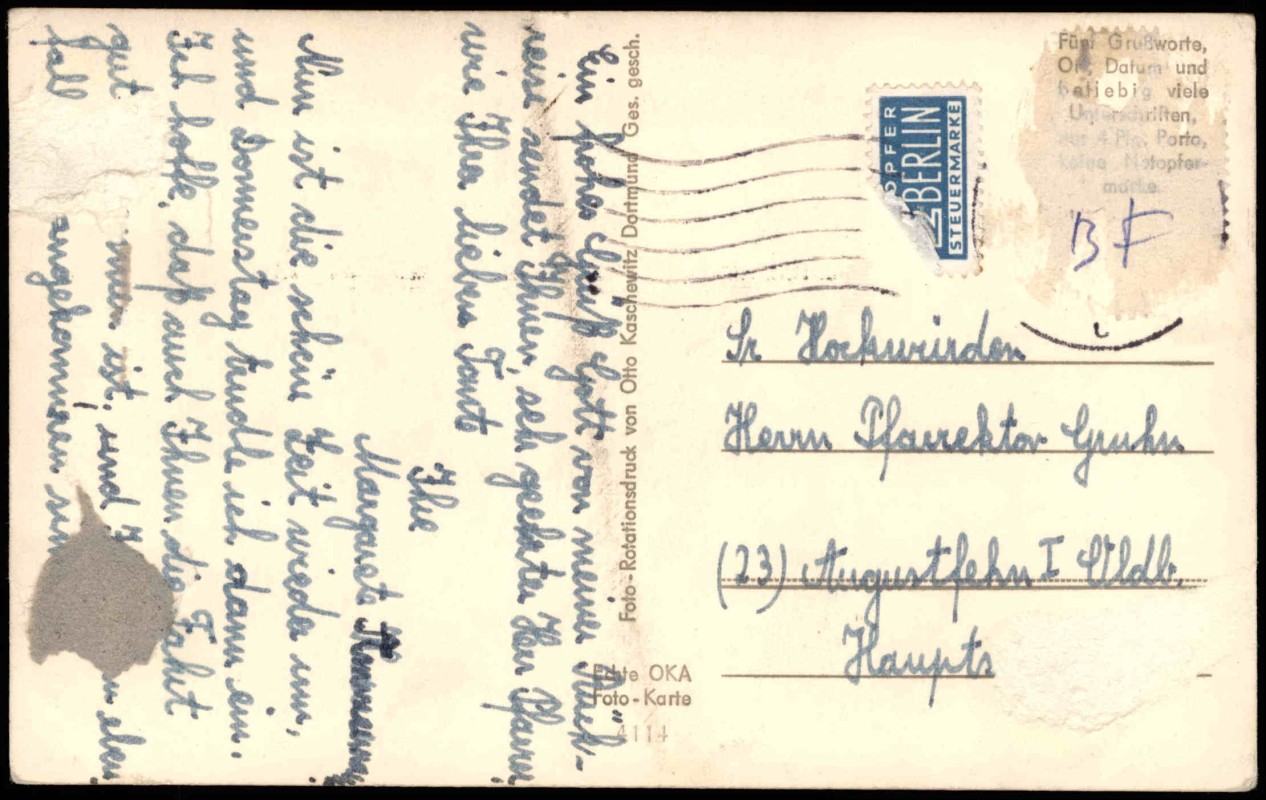 Ein frohes Grüß Gott von meiner Rück-
reise sendet Ihnen, sehr geehrter Herr Pfarrer,
wie Ihrer lieben Tante
Ihre
Margarete
Nun ist die schöne Zeit wieder um,
und Donnerstag trudle ich dann ein.
Ich hoffe, daß auch Ihnen die Fahrt
gut ist, und eben
fall angekommen
Foto-Rotationsdruck von Otto Kaschewitz Dortmund Ges. gesch.
Echte OKA
Foto-Karte
4114
OPFER
2 BERLIN
STEUERMARKE
Fünf Grußworte,
Ort, Datum und
beliebig viele
Unterschriften,
nur 4 Pfg. Porto,
keine Notopfer-
marke
BF
Sr Hochwürden
Herrn Pfarrektor Gruhn
(23) Augustfehn I Oldb.
Haupts